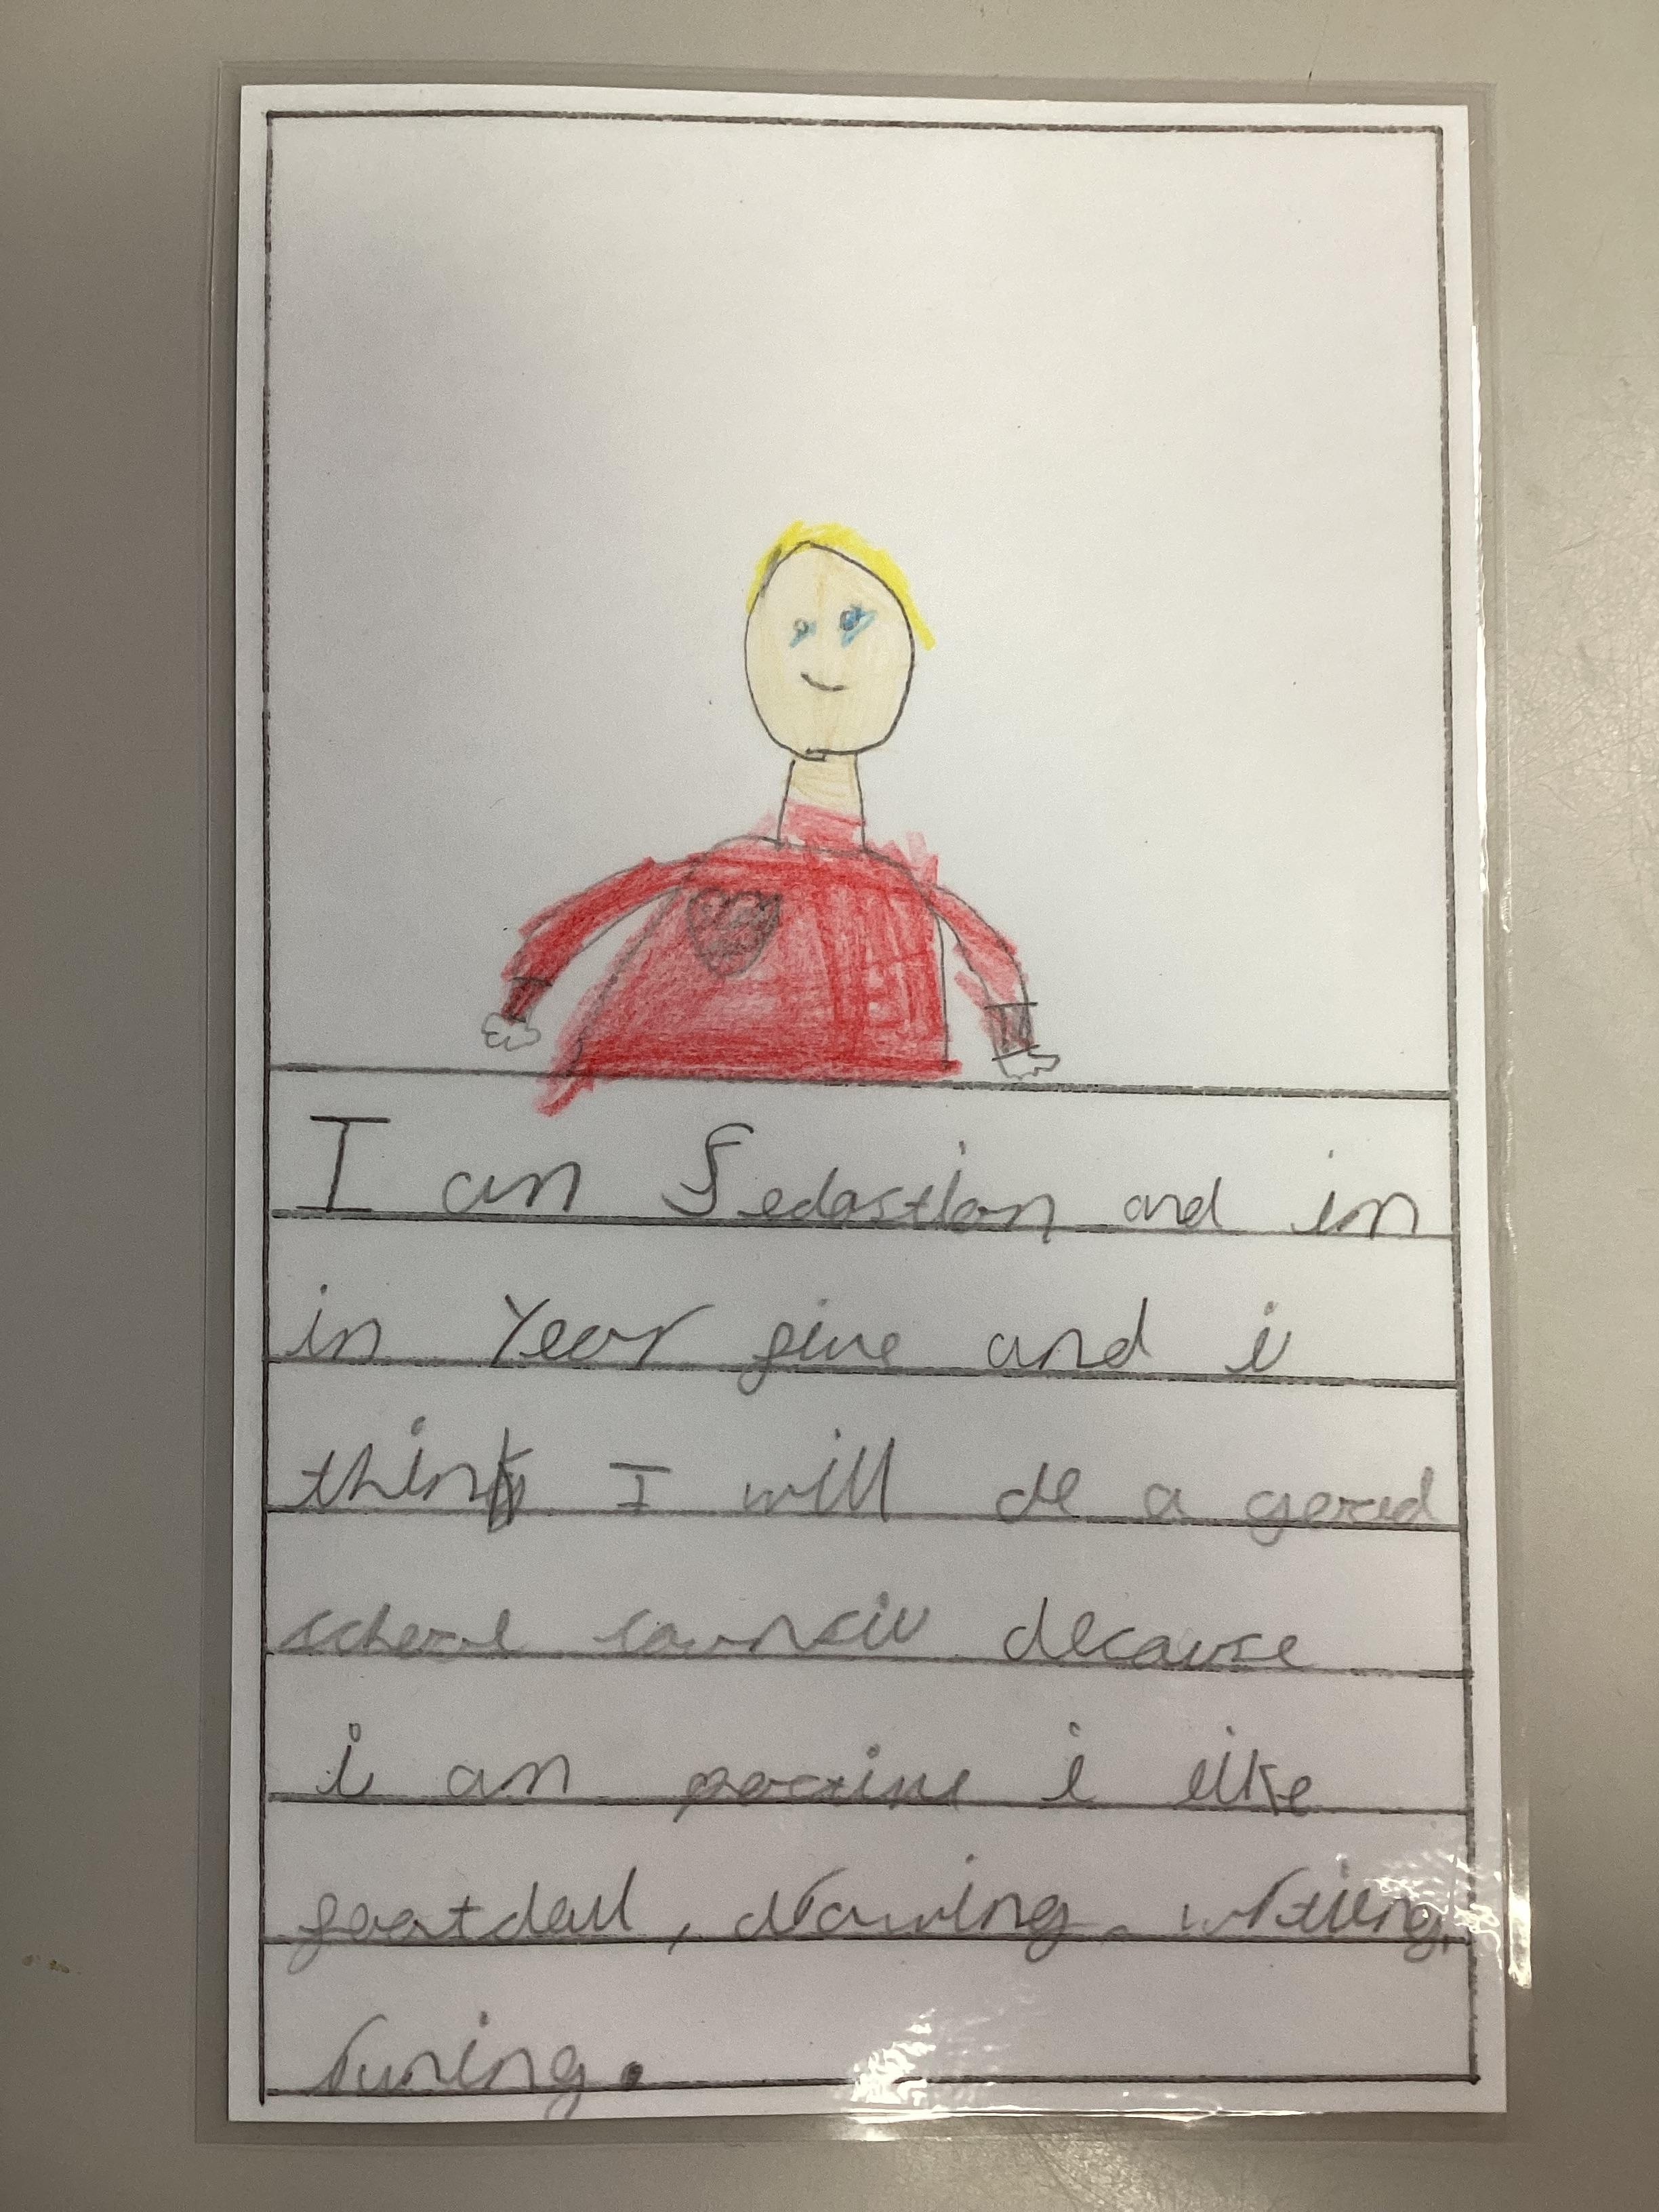 I am Sebastian and im
in Year five and i
think I will be a good
school council because
i am positive i like
football, drawing, writing,
runing.